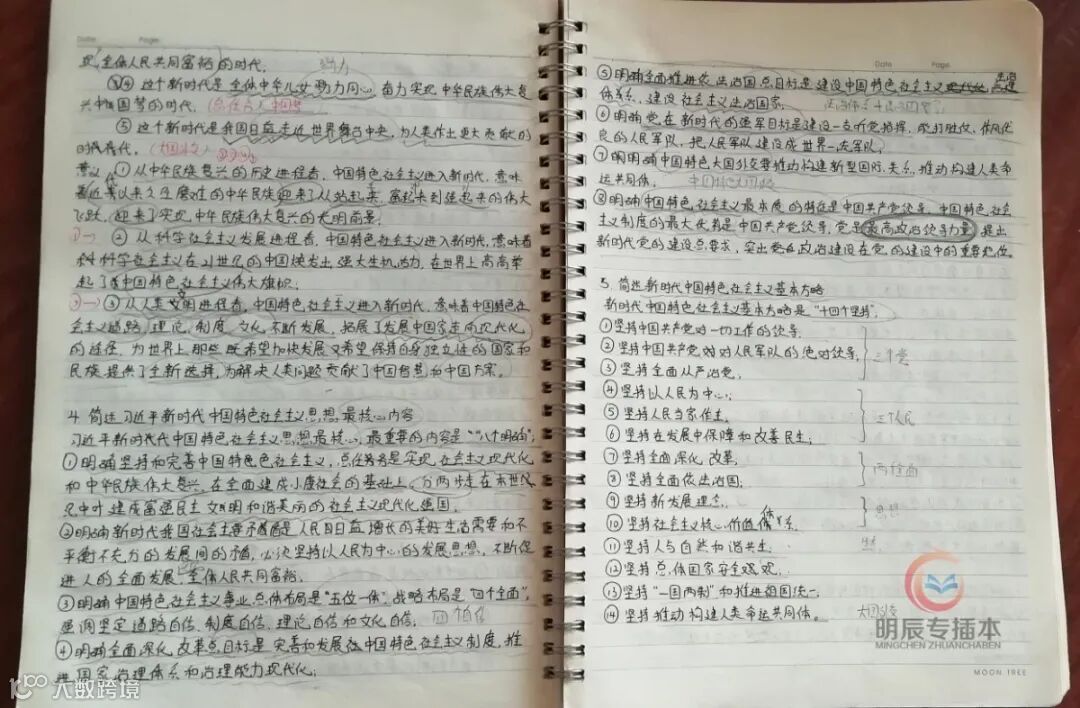 Date Page
现 全体人民共同富裕的时代。
③④ 这个新时代是 全体中华儿女 勠力同心、奋力实现 中华民族伟大复
兴中国梦的时代。(总任务) 中国梦
⑤ 这个新时代是我国日益走近世界舞台中央,为人类作出更大贡献的
时代。
意义:①从中华民族复兴的历史进程看,中国特色社会主义进入新时代,意味
着近代以来久经磨难的中华民族迎来了从站起来、富起来到强起来的伟大
飞跃,迎来了实现中华民族伟大复兴的光明前景。
② 从科学社会主义发展进程看,中国特色社会主义进入新时代,意味着
科学社会主义在21世纪的中国焕发出强大生机活力,在世界上高高举
起了中国特色社会主义伟大旗帜;
③从人类文明进程看,中国特色社会主义进入新时代,意味着中国特色社
会主义道路、理论、制度、文化不断发展,拓展了发展中国家走向现代化
的途径,为世界上那些既希望加快发展又希望保持自身独立性的国家和
民族提供了全新选择,为解决人类问题贡献了中国智慧和中国方案。
4. 简述习近平新时代中国特色社会主义思想最核心内容
习近平新时代代中国特色社会主义思想最核心、最重要的内容是“八个明确”;
①明确坚持和完善中国特色色社会主义,总任务务是实现社会主义现代化
和中华民族伟大复兴,在全面建成小康社会的基础上,分两步走在本世
纪中叶建成富强民主文明和谐美丽的社会主义现代化强国。
②明确新时代我国社会主要矛盾是人民日益增长的美好生活需要和不
平衡不充分的发展间的矛盾,必须坚持以人民为中心的发展思想,不断促
进人的全面发展、全体人民共同富裕。
③明确中国特色社会主义事业总体布局是“五位一体”、战略布局是“四个全面”,
强调坚定道路自信、制度自信、理论自信和文化自信; 四自信
④明确全面深化改革总目标是完善和发展中国特色社会主义制度,推
进国家治理体系和治理能力现代化;
Date Page
⑤明确全面推进依法治国总目标是建设中国特色社会主义法治
体系,建设社会主义法治国家。
⑥明确党在新时代的强军目标是建设一支听党指挥、能打胜仗、作风优
良的人民军队,把人民军队建设成世界一流军队;
⑦明确中国特色大国外交要推动构建新型国际关系,推动构建人类命
运共同体。
⑧明确中国特色社会主义最本质的特征是中国共产党领导,中国特色社会
主义制度的最大优势是中国共产党领导,党是最高政治领导力量,提出
新时代党的建设总要求,突出党的政治建设在党的建设中的重要地位。
5. 简述新时代中国特色社会主义基本方略
新时代中国特色社会主义基本方略是“十四个坚持”。
①坚持中国共产党对一切工作的领导
②坚持中国共产党对对人民军队的绝对领导; 三个党
③坚持全面从严治党。
④坚持以人民为中心;
⑤坚持人民当家作主。 三个人民
⑥坚持在发展中保障和改善民生;
⑦坚持全面深化改革, 两全面
⑧坚持全面依法治国;
⑨坚持新发展理念, 思想
⑩坚持社会主义核心价值体系
⑪坚持人与自然和谐共生;
⑫坚持总体国家安全观;
⑬坚持“一国两制”和推进祖国统一
⑭坚持推动构建人类命运共同体。
明辰专插本
MINGCHEN ZHUANCHABEN
MOON TREE
大数跨境